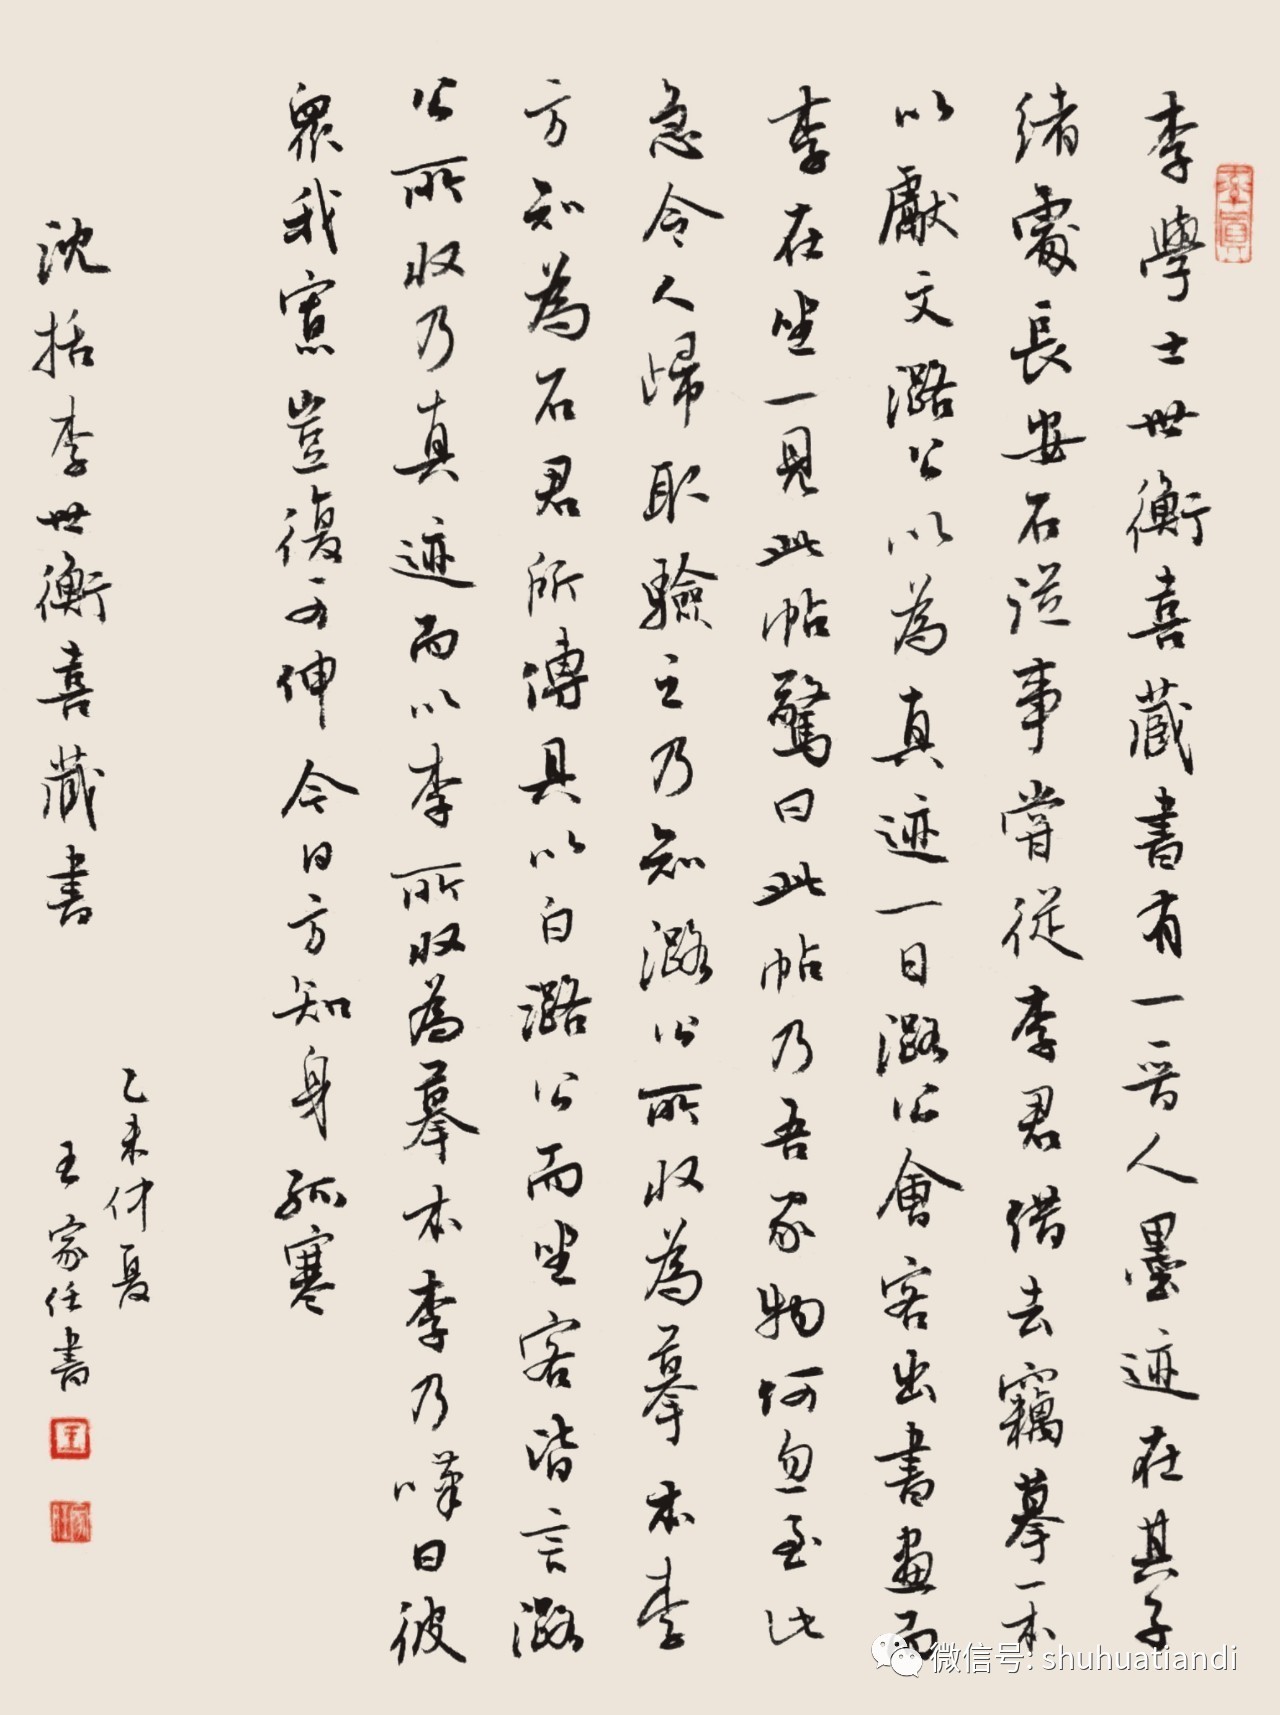 李學士世衡喜藏書有一晉人墨迹在其子
緒處長安石從事嘗從李君借去竊摹一本
以獻文潞公以為真迹一日潞公會客出書畫而
李在坐一見此帖驚曰此帖乃吾家物何忽至此
急令人歸取驗之乃知潞公所收為摹本李
方知為石君所傳具以白潞公而坐客皆言潞
公所收乃真迹而以李所收為摹本李乃嘆曰彼
眾我寡豈復可伸今日方知身孤寒
沈括李世衡喜藏書
乙未仲夏
王家任書
微信号: shuhuatiandi